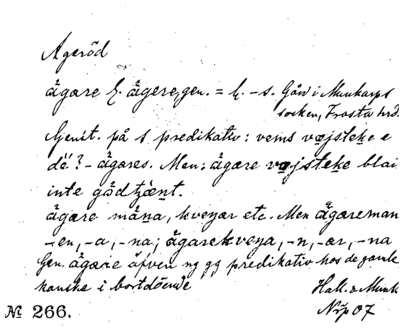 Ageröd
ägare l. ägere, gen. = l. -s. Gård i Munkarps
socken, Frosta hrd.
Genit. på s predikativ: vems vøjsteke e
dé? - ägares. Men: ägare vøjsteke blai
inte gådtjent.
ägare måna, kvenar etc. Men ägareman
-en, -a, -na; ägarekvena, -n, -ær, -na
Gen. ägare äfven ng gg predikativ hos de gamle
kanske i bortdöende
Hall. o Munk
No 266.
07